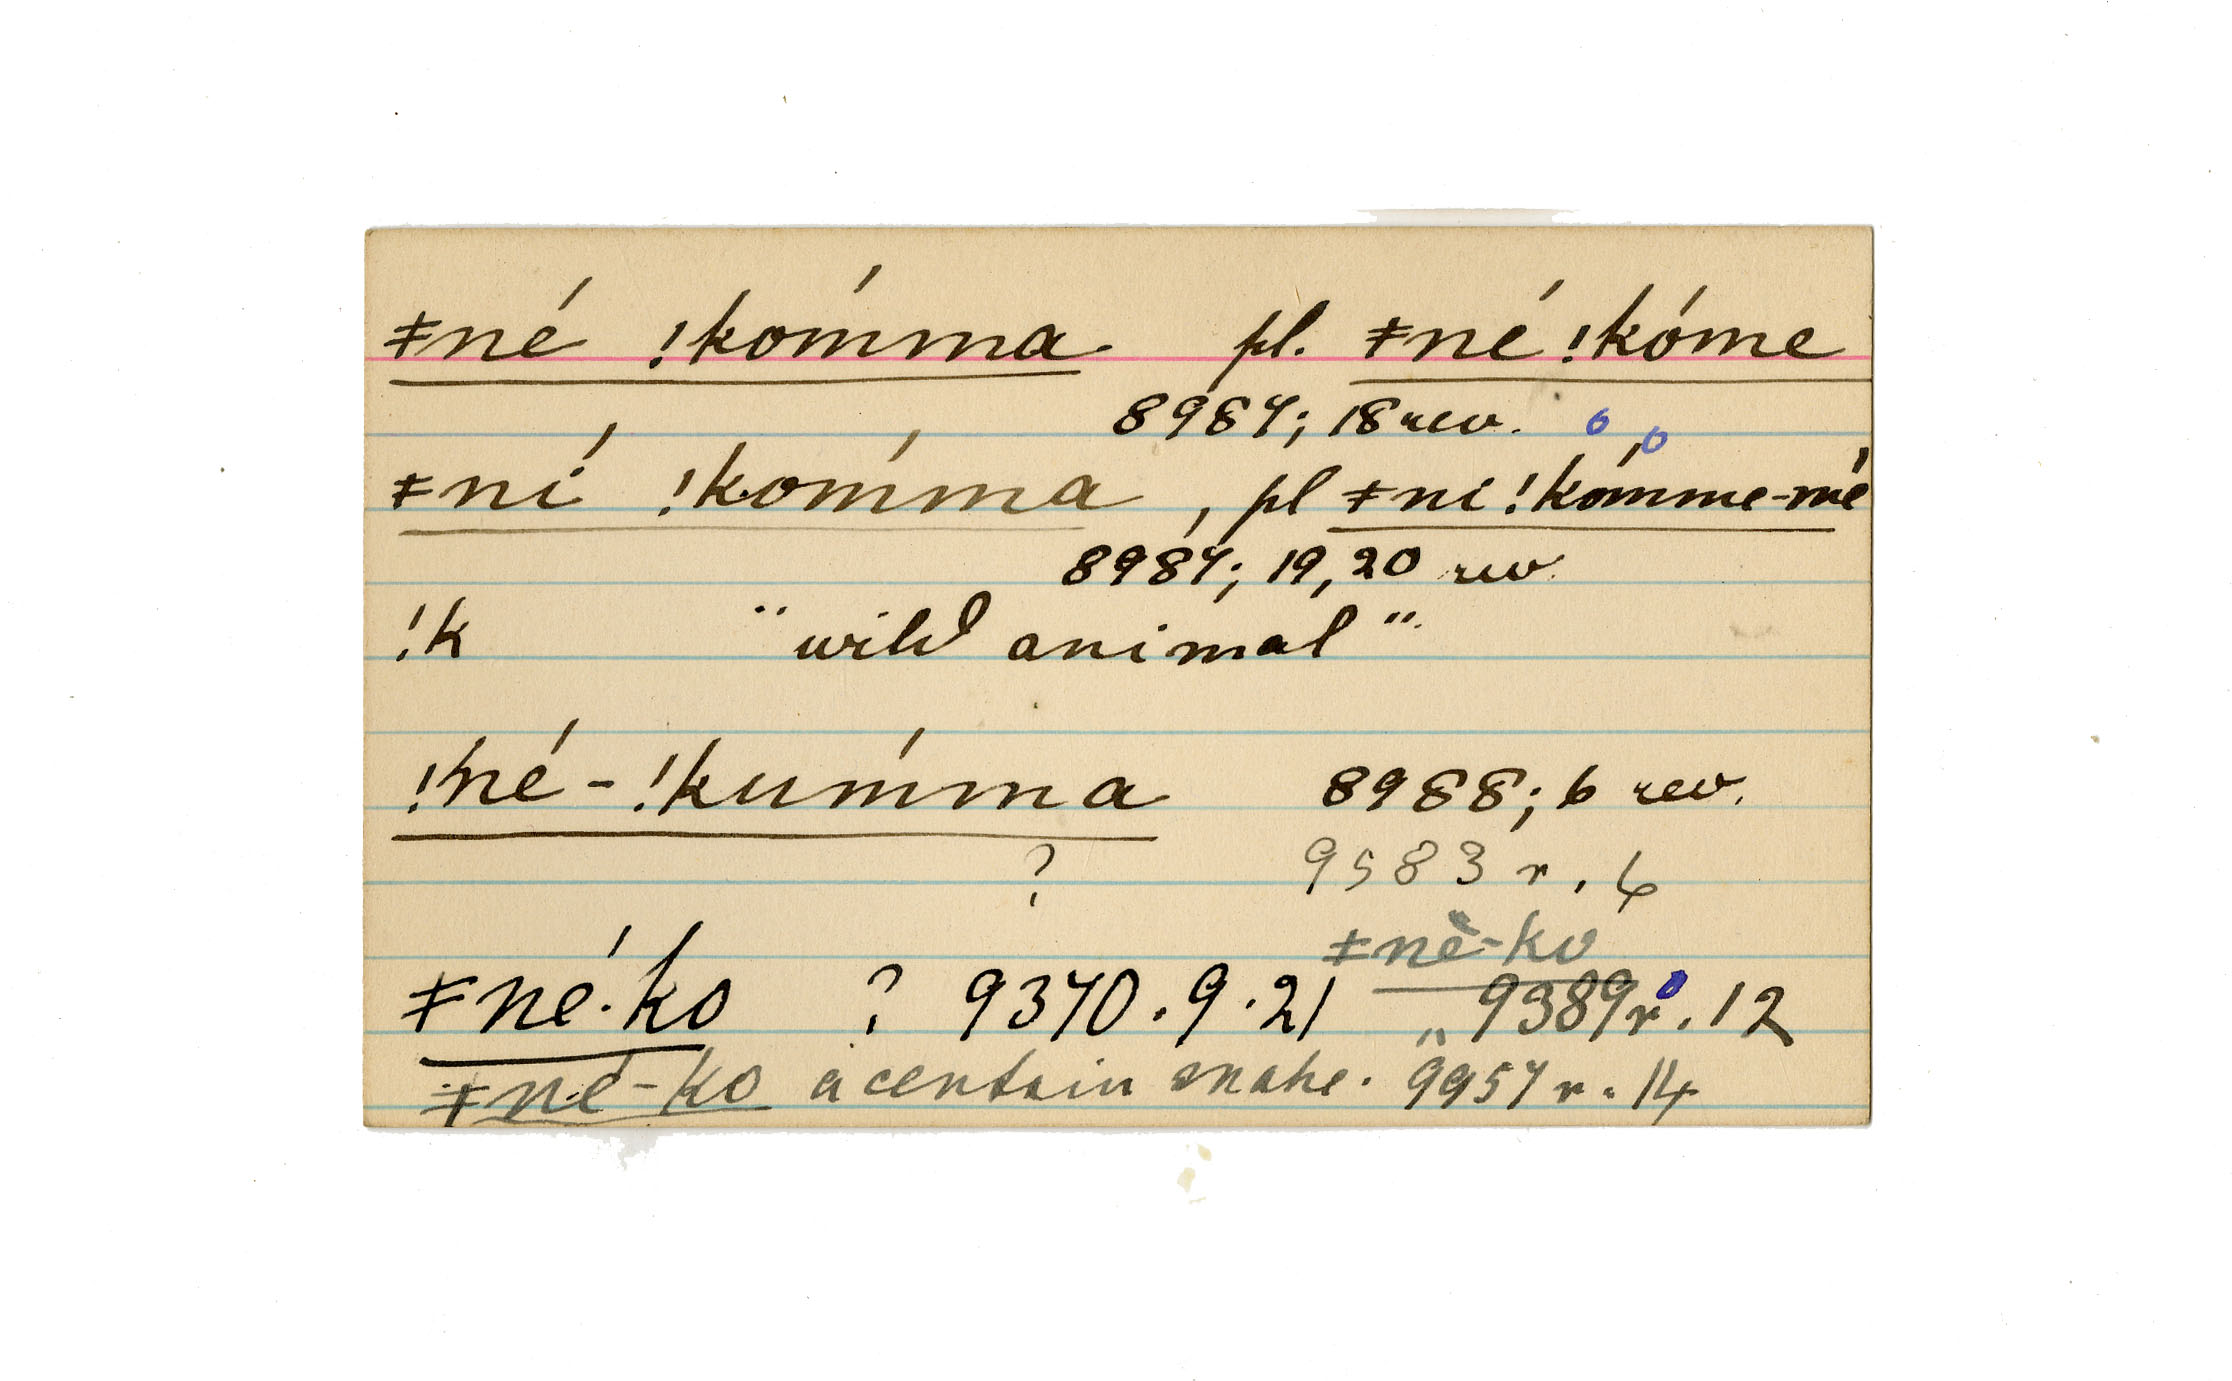 ǂné !kómma pl. ǂné !kóme
8987; 18 rev.
ǂní !kómma, pl ǂní !kómme-mé
8987; 19, 20 rev.
!k "wild animal"
!hé-!kúmma 8988; 6 rev.
? 9583 r. 4
ǂnè-ko
ǂné-ko ? 9370.9.21 9389 r. 12
ǂné-ko a certain snake. 9957 r. 14